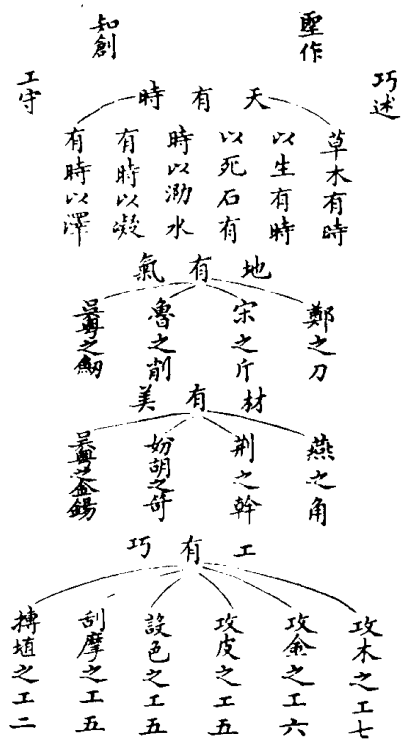 聖作
知創
巧述
工守
天有時
草木有時
以生有時
以死石有
時以泐水
有時以凝
有時以澤
地有氣
鄭之刀
宋之斤
魯之削
吳粵之釼
材有美
燕之角
荆之幹
妢胡之笴
吳粵之金錫
工有巧
攻木之工七
攻金之工六
攻皮之工五
設色之工五
刮摩之工五
摶埴之工二